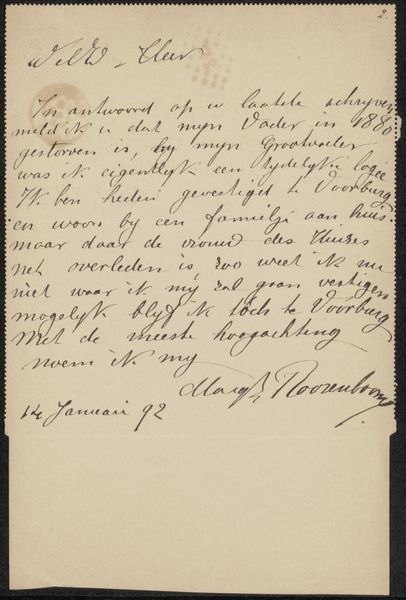 2.
WelEd. Heer
In antwoord op uw laatste schrijven
meld ik u dat mijn Vader in 1880
gestorven is, by mijn Grootvader
was ik eigentlyk een tydelyke logée
Ik ben heden gevestigd te Voorburg
en woon by een familje aan huis
maar daar de vrouw des Huizes
net overleden is, zoo weet ik nu
niet waar ik mij zal gaan vestigen
mogelyk blyf ik toch te Voorburg
Met de meeste hoogachting
noem ik my
Margte Roosenboom
14 Januari 92